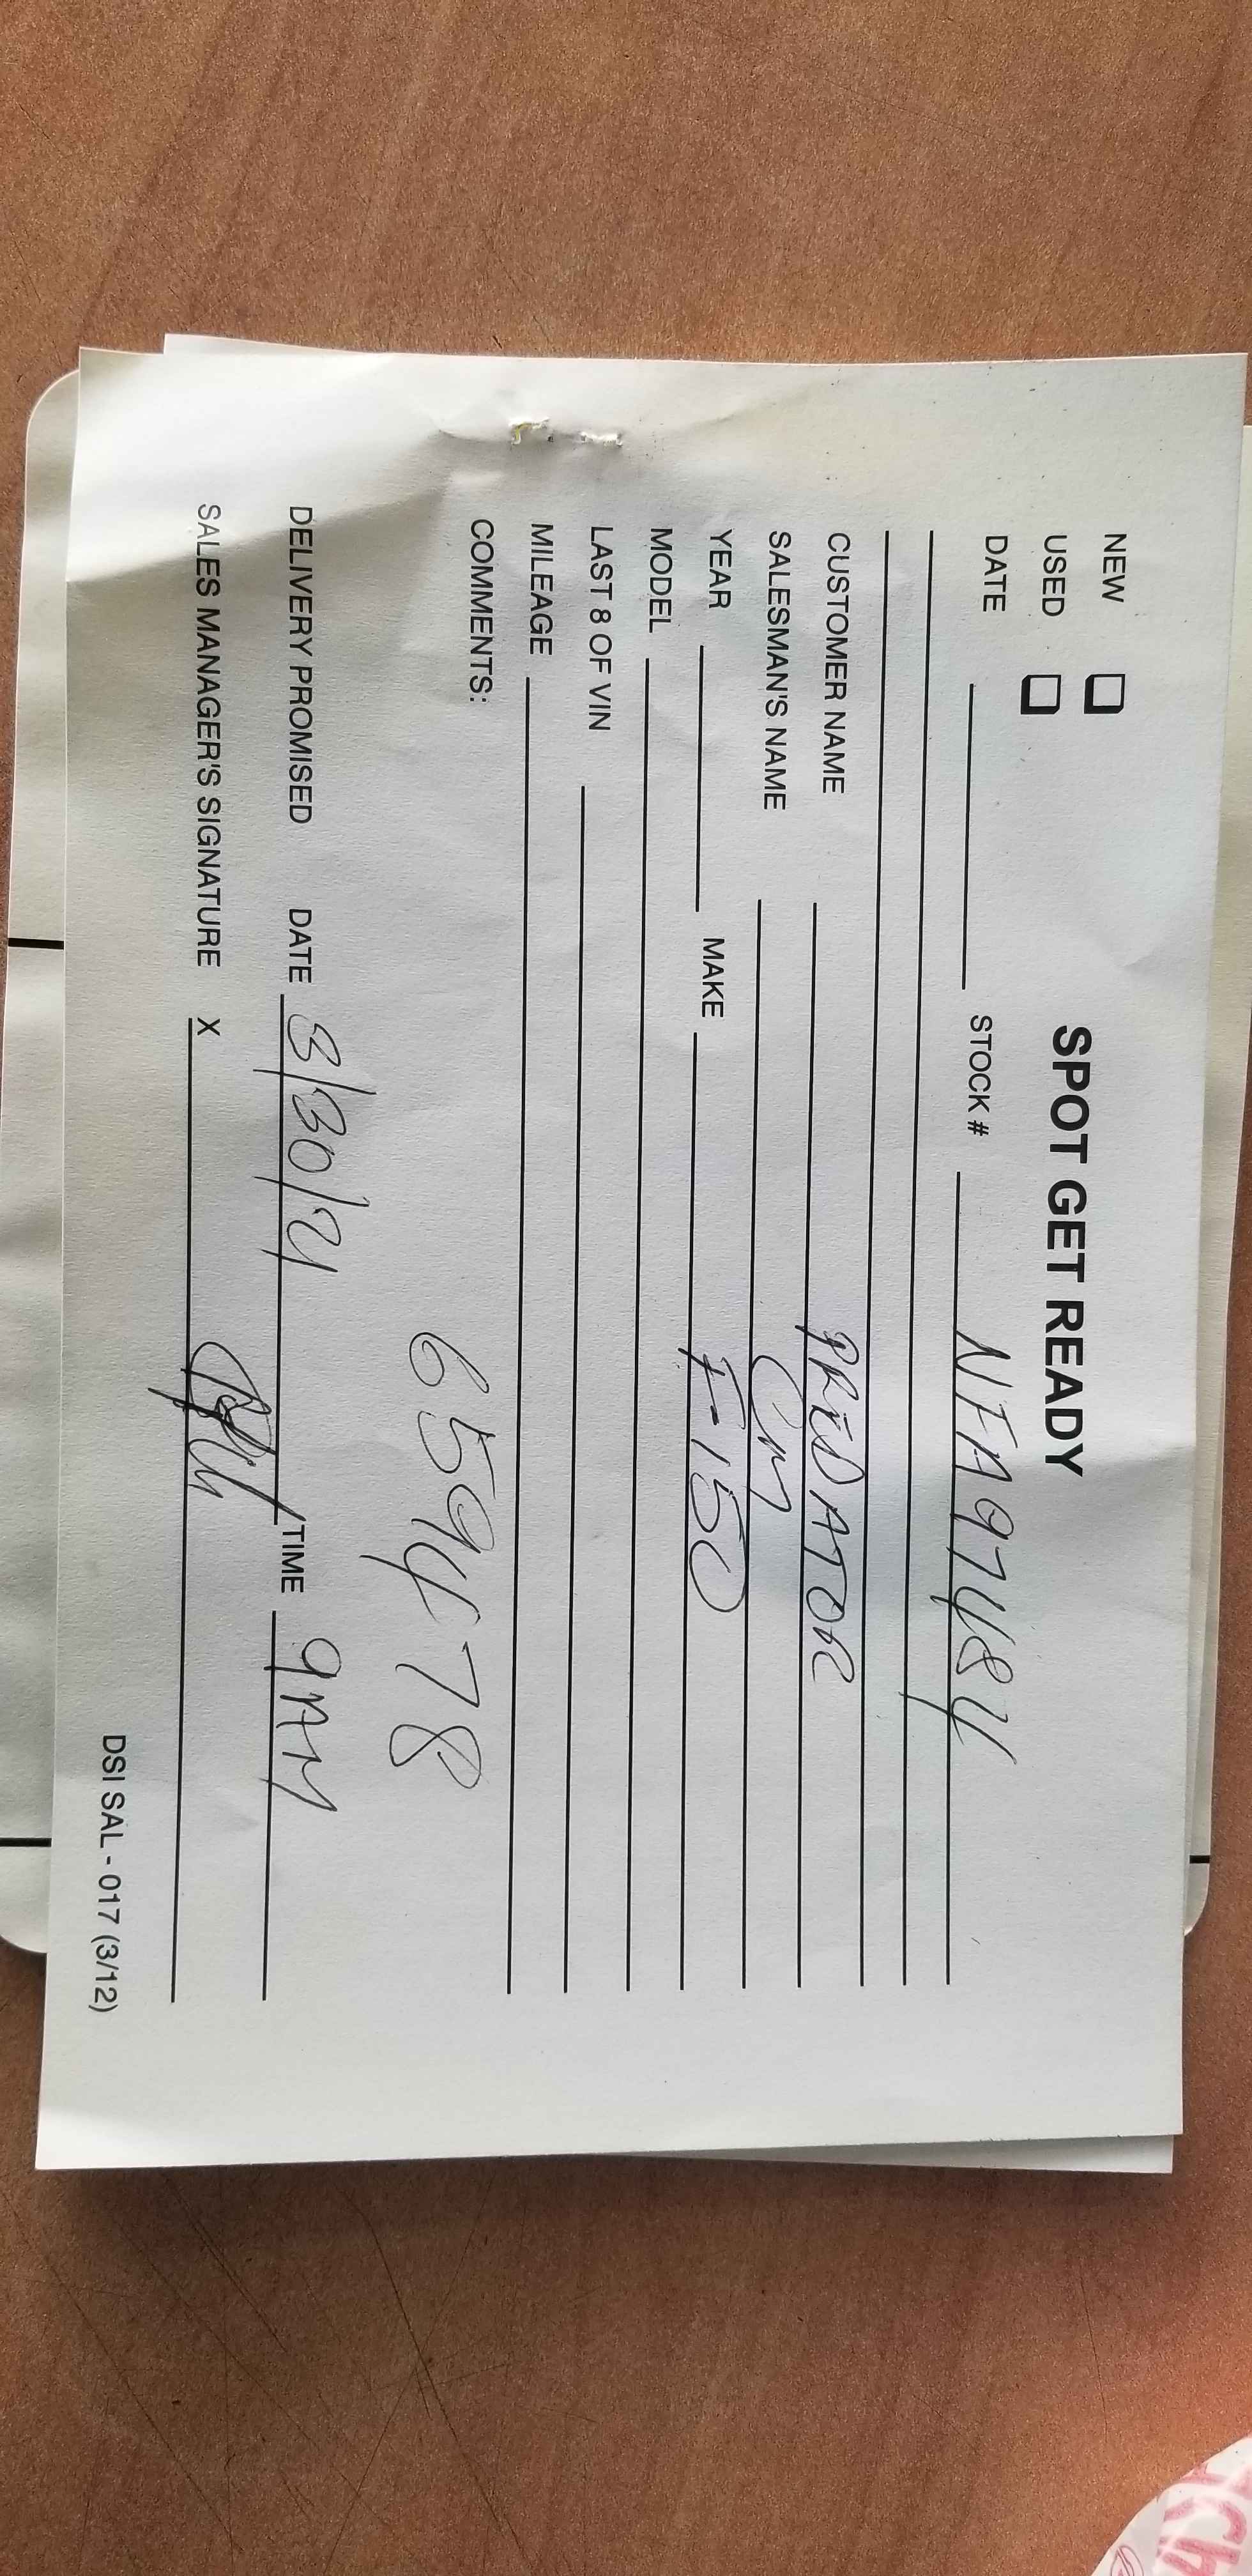 SPOT GET READY
NEW
USED
DATE STOCK # NFA97484
CUSTOMER NAME PREDATOR
SALESMAN'S NAME CM
YEAR MAKE F-150
MODEL
LAST 8 OF VIN
MILEAGE
COMMENTS:
DELIVERY PROMISED DATE 3/30/21 TIME 9AM
SALES MANAGER'S SIGNATURE X
DSI SAL - 017 (3/12)